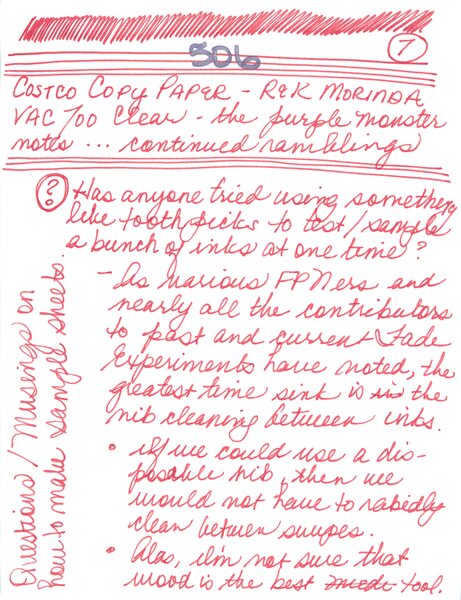 7
506
COSTCO COPY PAPER - R&K MORINDA
VAC 700 Clear - the purple monster
notes ... continued ramblings
? Has anyone tried using something
like toothpicks to test/sample
a bunch of inks at one time?
- As various FPNers and
nearly all the contributors
to past and current Fade
Experiments have noted, the
greatest time sink is in the
nib cleaning between inks.
• If we could use a dis-
posable nib, then we
would not have to rabidly
clean between swipes.
• Alas, I'm not sure that
wood is the best tool.
Questions/Musings on
how to make sample sheets.